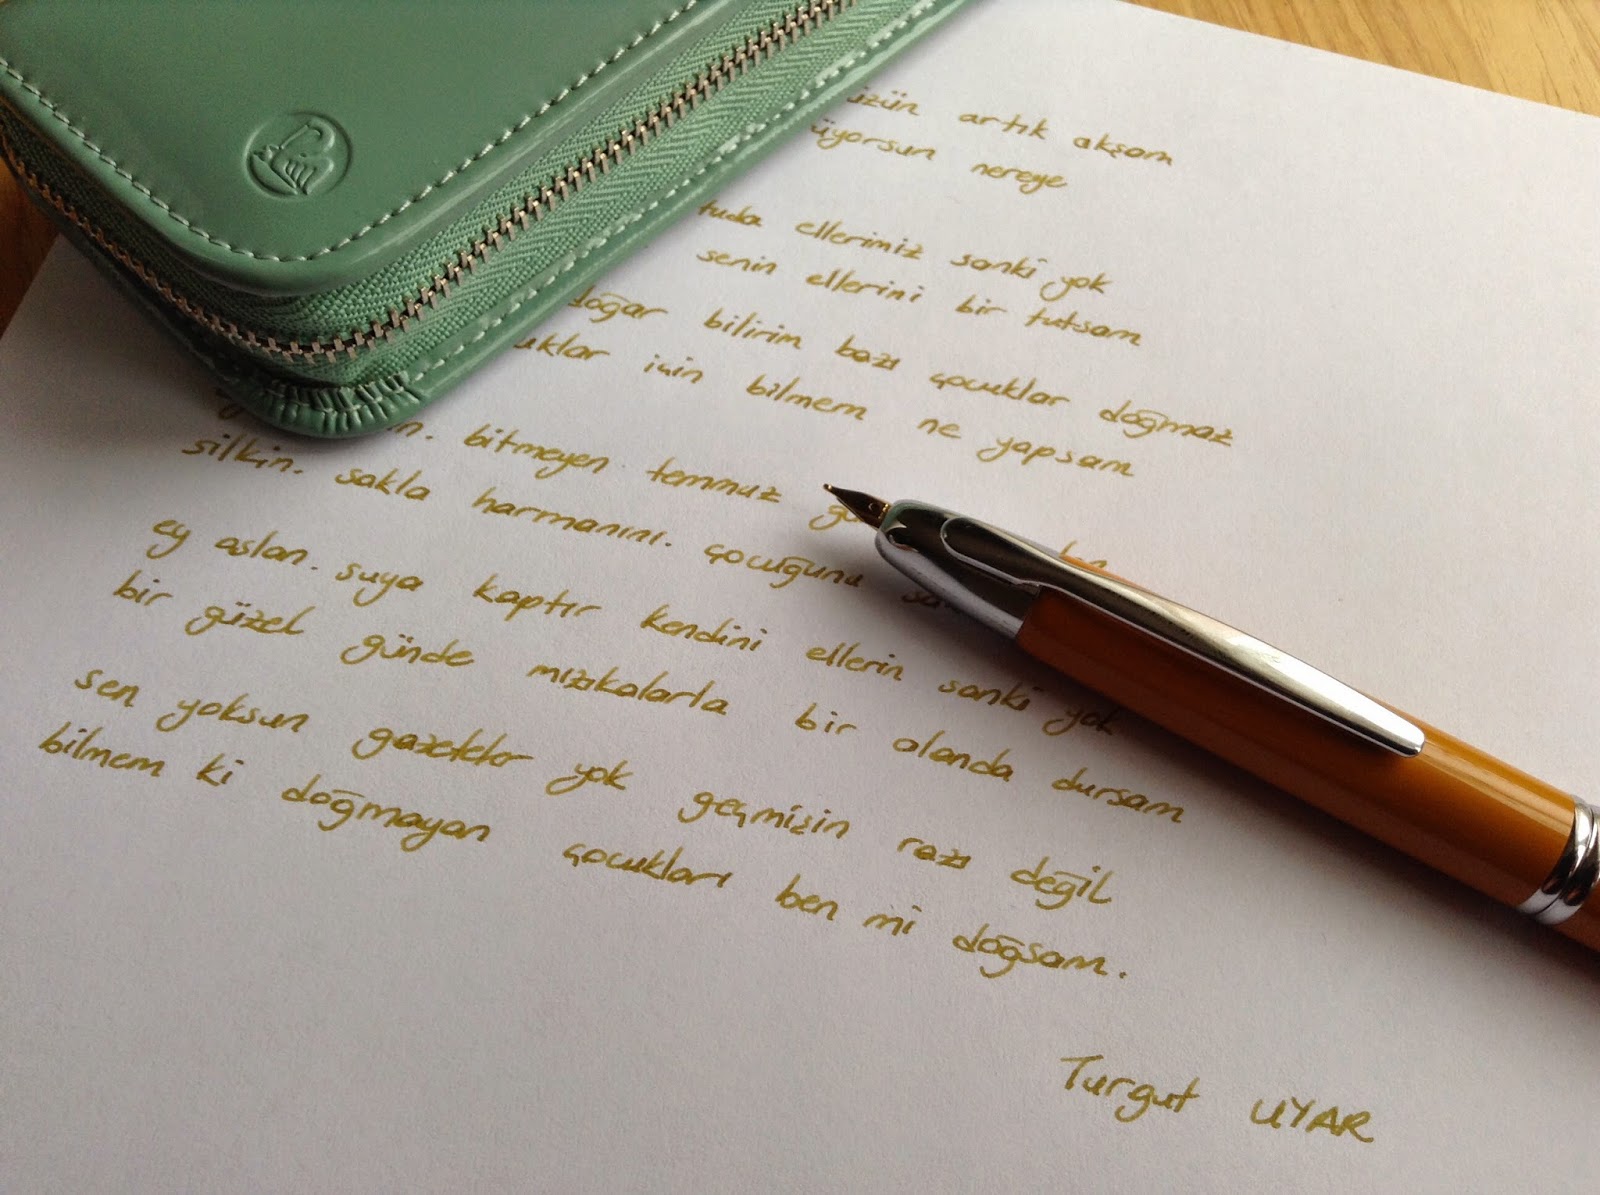 üzün artık akşam
üyorsun nereye
tuda ellerimiz sanki yok
senin ellerini bir tutsam
doğar bilirim bazı çocuklar doğmaz
uklar için bilmem ne yapsam
bitmeyen temmuz
silkin. sakla harmanını. çocuğunu
ey aslan. suya kaptır kendini ellerin sanki yok
bir güzel günde mızıkalarla bir alanda dursam
sen yoksun gazeteler yok geçmişin razı değil
bilmem ki doğmayan çocukları ben mi doğsam.
Turgut UYAR